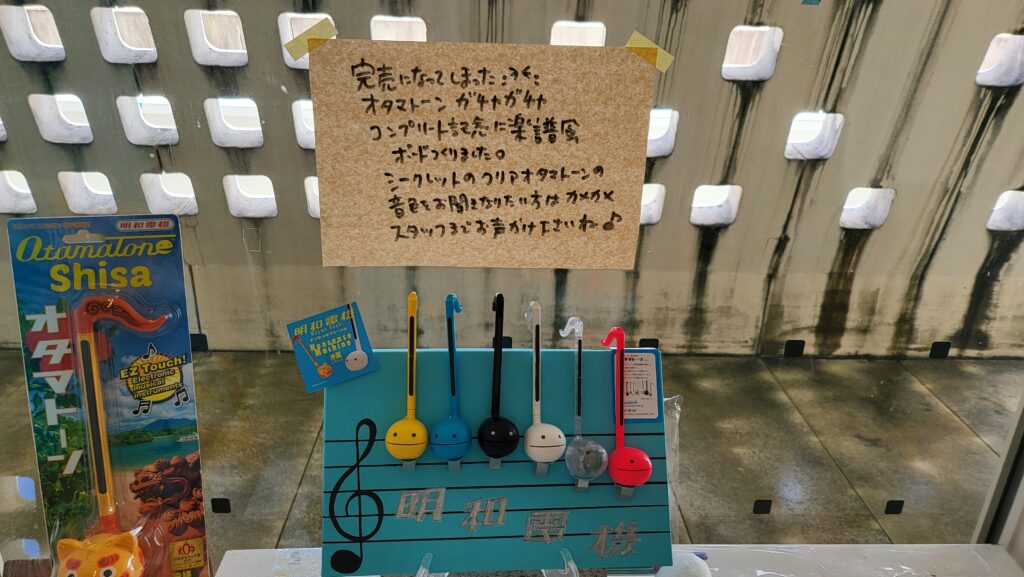 完売になってしまった
オタマトーン ガチャガチャ
コンプリート記念に楽譜風
ボードつくりました。
シークレットのクリアオタマトーンの
音色をお聞きなりたい方は カメカメ
スタッフまでお声がけ下さいね♪
明和電機
Otamatone
Shisa
オタマトーン
EZ Touch!
Electronic
musical
instruments
明和電機
Nonsense
Machine
沖縄
明和電機